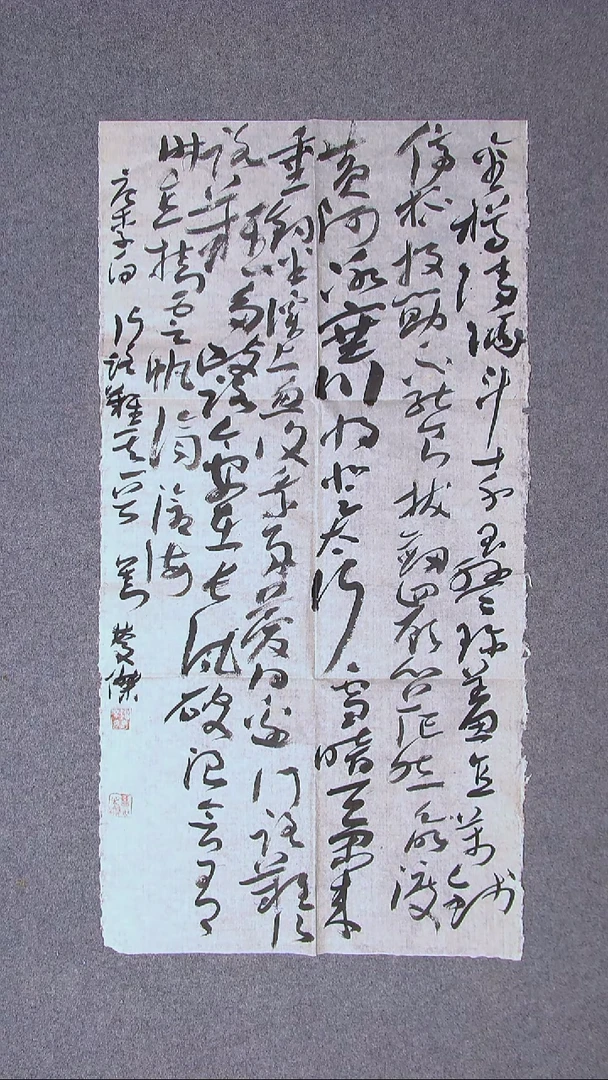 金樽清酒斗十千玉盤珍羞直萬錢
停杯投筯不能食拔劍四顧心茫然欲渡
黄河冰塞川將登太行雪暗天閑來
垂釣坐溪上忽復乘舟夢日邊行路難行
路難多歧路今安在長風破浪會有
時直挂雲帆濟滄海
唐李白 行路難其一 傑